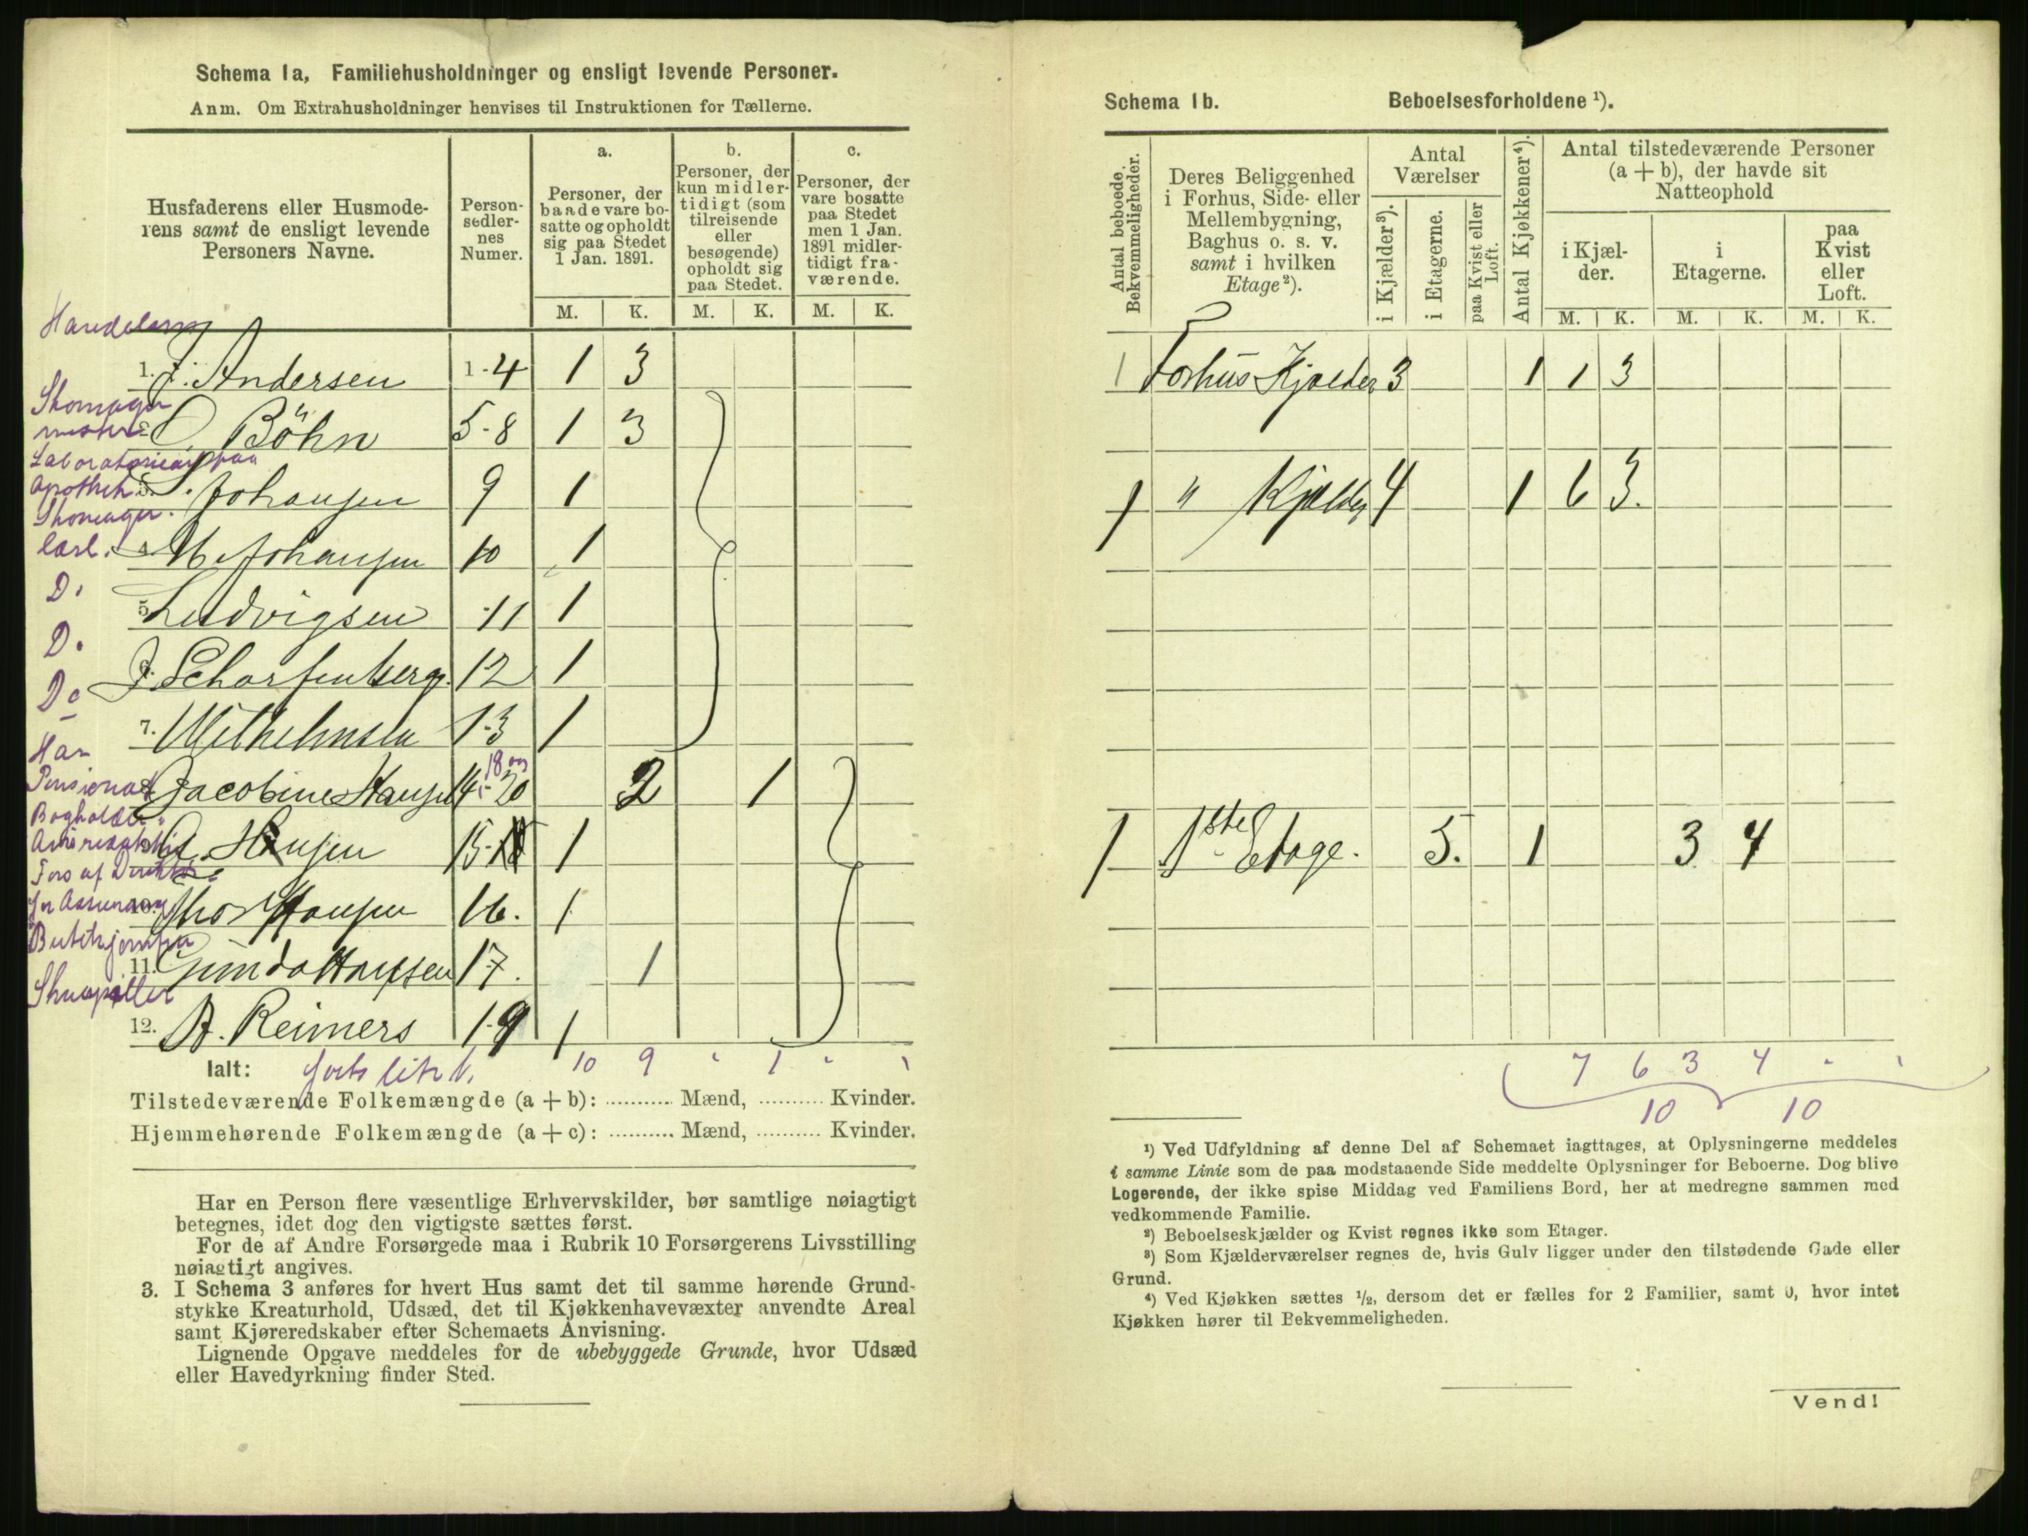 Schema 1a, Familiehusholdninger og ensligt levende Personer.
Anm. Om Extrahusholdninger henvises til Instruktionen for Tællerne.
Husfaderens eller Husmode-
rens samt de ensligt levende
Personers Navne.
Person-
sedler-
nes
Numer.
a.
Personer, der
baade vare bo-
satte og opholdt
sig paa Stedet
1 Jan. 1891.
b.
Personer, der
kun midler-
tidigt (som
tilreisende
eller
besøgende)
opholdt sig
paa Stedet.
c.
Personer, der
vare bosatte
paa Stedet
men 1 Jan.
1891 midler-
tidigt fra-
værende.
M. K. M. K. M. K.
1. J. Andersen 1-4 1 3
Skomager
Böhn 5-8 1 3
Laboratorieup paa
Apothek
Johansen 9 1
Skomager.
Johansen 10 1
D.
5. Ludvigsen 11 1
D.
6. J. Scharfenberg. 12 1
Do
7. Wilhelmsen 13 1
Pensionat
Jacobine Hansen 14 18 og 20 2 1
Bogholder
Hansen 15 1
10. Thor Hansen 16. 1
Butikjomfru
11. Gunda Hansen 17. 1
Skuespiller
12. A. Reimers 19 1
Ialt: 10 9 " 1 " "
Tilstedeværende Folkemængde (a + b): .......... Mænd, .......... Kvinder.
Hjemmehørende Folkemængde (a + c): .......... Mænd, .......... Kvinder.
Har en Person flere væsentlige Erhvervskilder, bør samtlige nøiagtigt
betegnes, idet dog den vigtigste sættes først.
For de af Andre Forsørgede maa i Rubrik 10 Forsørgerens Livsstilling
nøiagtigt angives.
3. I Schema 3 anføres for hvert Hus samt det til samme hørende Grund-
stykke Kreaturhold, Udsæd, det til Kjøkkenhavevæxter anvendte Areal
samt Kjøreredskaber efter Schemaets Anvisning.
Lignende Opgave meddeles for de ubebyggede Grunde, hvor Udsæd
eller Havedyrkning finder Sted.
Schema 1b. Beboelsesforholdene ¹).
Antal beboede
Bekvemmeligheder.
Deres Beliggenhed
i Forhus, Side- eller
Mellembygning,
Baghus o. s. v.
samt i hvilken
Etage²).
Antal
Værelser
i Kjælder³).
i Etagerne.
paa Kvist eller
Loft.
Antal Kjøkkener⁴).
Antal tilstedeværende Personer
(a + b), der havde sit
Natteophold
i Kjæl-
der.
i
Etagerne.
paa
Kvist
eller
Loft.
M. K. M. K. M. K.
1 Forhus Kjælder 3 1 1 3
1 " Kjælder 4 1 6 3.
1 1ste Etage. 5. 1 3 4
7 6 3 4 " "
10 10
¹) Ved Udfyldning af denne Del af Schemaet iagttages, at Oplysningerne meddeles
i samme Linie som de paa modstaaende Side meddelte Oplysninger for Beboerne. Dog blive
Logerende, der ikke spise Middag ved Familiens Bord, her at medregne sammen med
vedkommende Familie.
²) Beboelseskjælder og Kvist regnes ikke som Etager.
³) Som Kjælderværelser regnes de, hvis Gulv ligger under den tilstødende Gade eller
Grund.
⁴) Ved Kjøkken sættes ½, dersom det er fælles for 2 Familier, samt 0, hvor intet
Kjøkken hører til Bekvemmeligheden.
Vend!